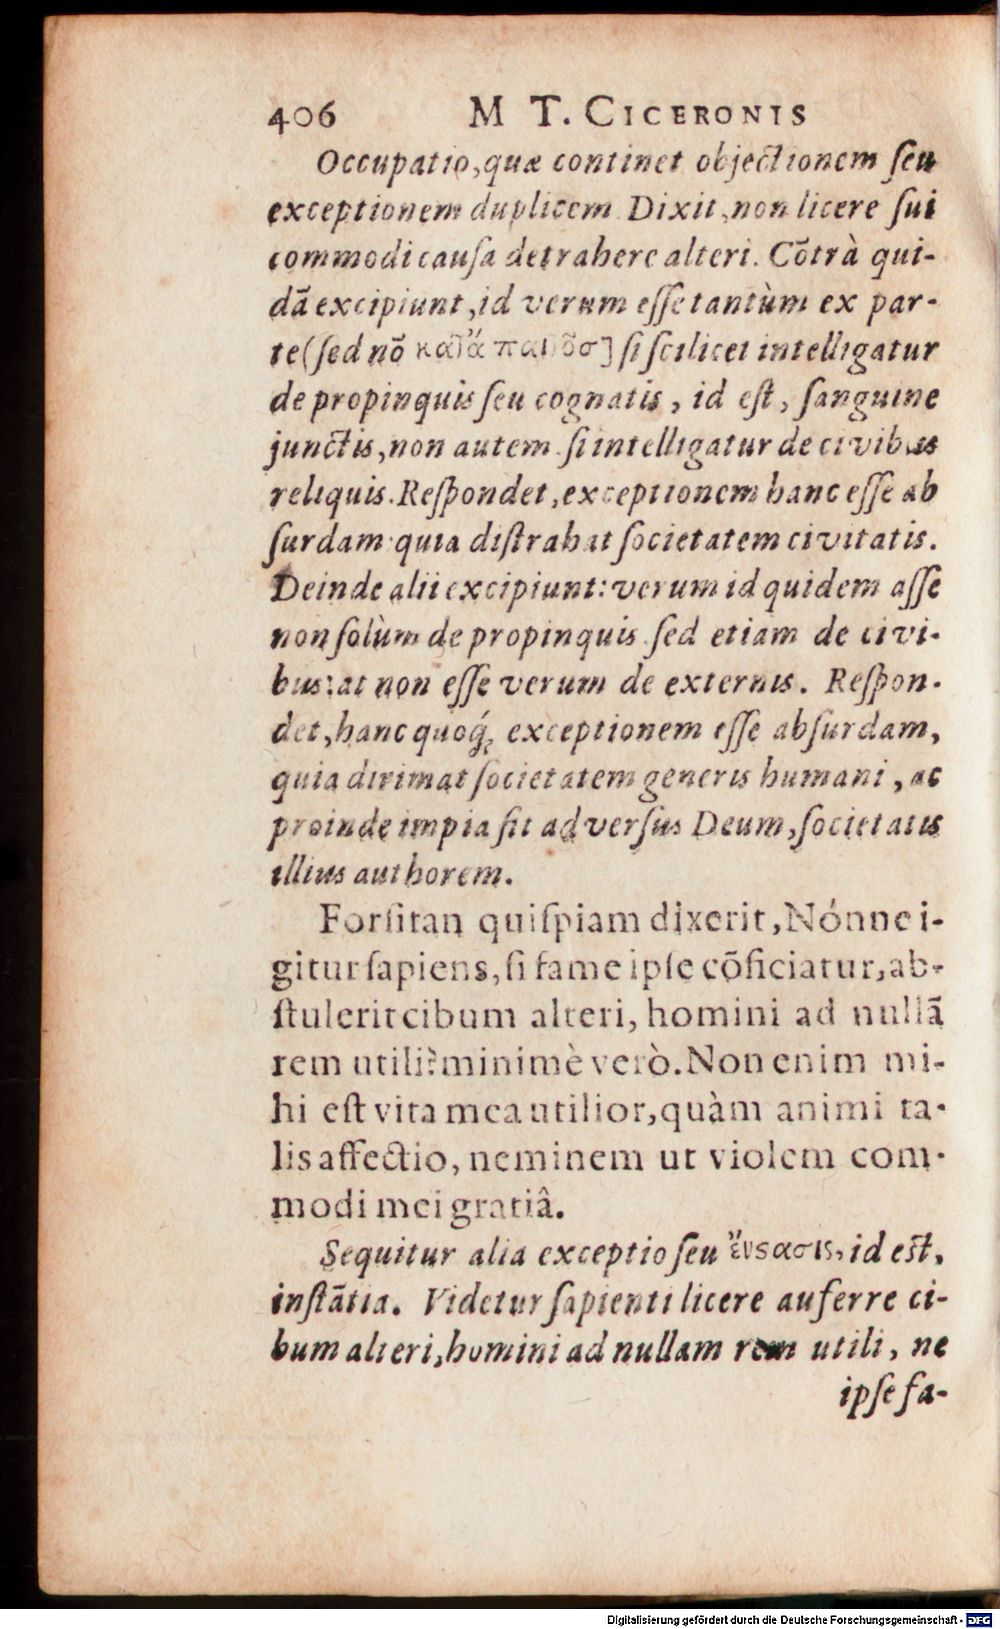 406 M T. CICERONIS
Occupatio, quæ continet objectionem ſeu
exceptionem duplicem Dixit, non licere ſui
commodi cauſa detrahere alteri. Cõtrà qui-
dã excipiunt, id verum eſſe tantùm ex par-
te (ſed nõ ] ſi ſcilicet intelligatur
de propinquis ſeu cognatis, id eſt, ſanguine
junctis, non autem ſi intelligatur de civibus
reliquis. Reſpondet, exceptionem hanc eſſe ab
ſurdam quia diſtrahat ſocietatem civitatis.
Deinde alii excipiunt: verum id quidem aſſe
non ſolùm de propinquis ſed etiam de civi-
bus: at non eſſe verum de externis. Reſpon-
det, hanc quoq́; exceptionem eſſe abſurdam,
quia dirimat ſocietatem generis humani, ac
proinde impia ſit adverſus Deum, ſocietatis
illius authorem.
Forſitan quiſpiam dixerit, Nónne i-
gitur ſapiens, ſi fame ipſe cõficiatur, ab-
ſtulerit cibum alteri, homini ad nullã
rem utili? minimè verò. Non enim mi-
hi eſt vita mea utilior, quàm animi ta-
lis affectio, neminem ut violem com-
modi mei gratiâ.
Sequitur alia exceptio ſeu ἔνϛασις, id eſt,
inſtãtia. Videtur ſapienti licere auferre ci-
bum alteri, homini ad nullam rem utili, ne
ipſe fa-
Digitalisierung gefördert durch die Deutsche Forschungsgemeinschaft - DFG